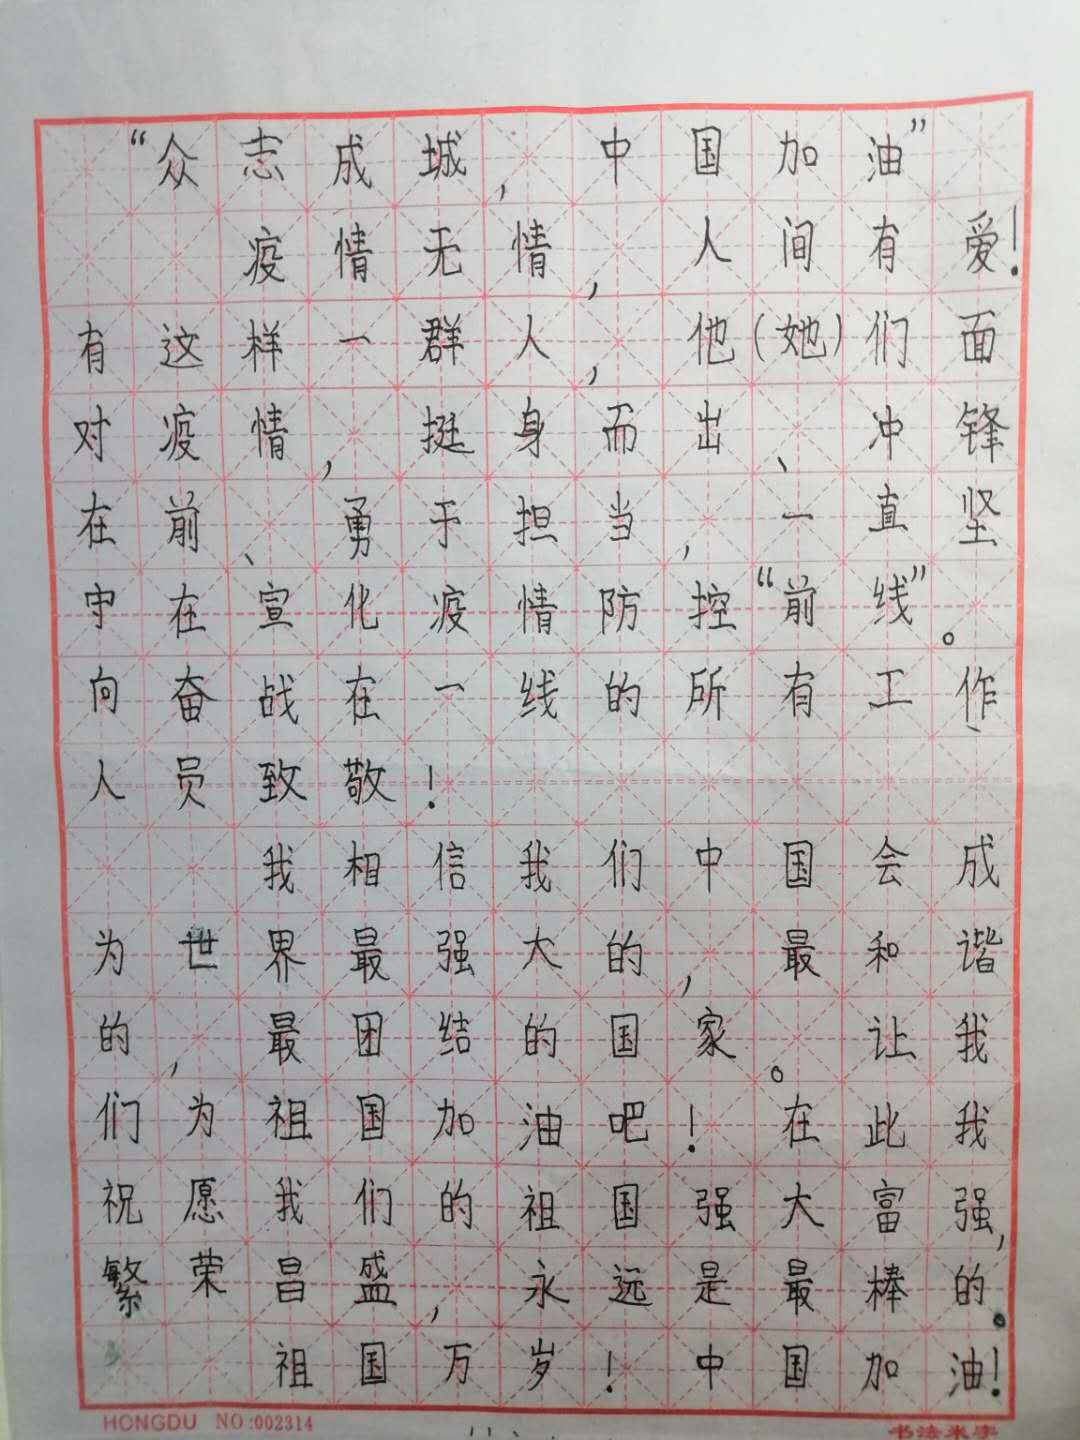 “众志成城，中国加油”
疫情无情，人间有爱！
有这样一群人，他（她）们面
对疫情，挺身而出、冲锋
在前、勇于担当，一直坚
守在宣化疫情防控“前线”。
向奋战在一线的所有工作
人员致敬！
我相信我们中国会成
为世界最强大的，最和谐
的，最团结的国家。让我
们为祖国加油吧！在此我
祝愿我们的祖国强大富强，
繁荣昌盛，永远是最棒的。
祖国万岁！中国加油！
HONGDU NO:002314
书法米字